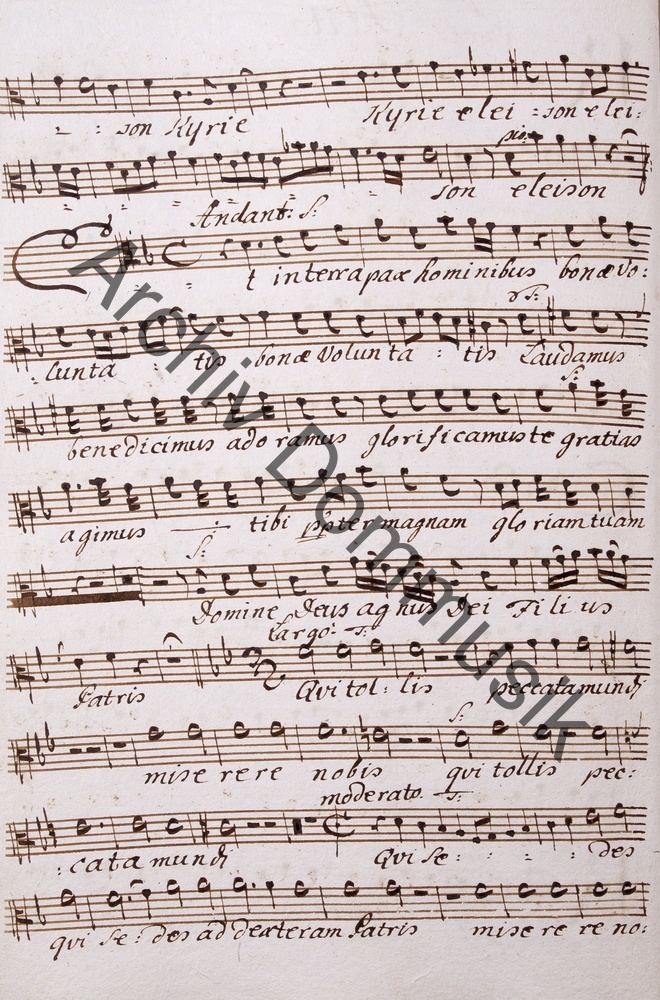 - : son Kyrie Kyrie e lei = son e lei:
pio:
= = = = = son eleison
Andant: S:
t in terra pax hominibus bonæ Vo:
S:
: lunta : tis bonæ Volun ta : tis Laudamus
S:
benedicimus ado ramus glorificamuste gratias
agimus tibi ppter magnam glo riam tuam
S:
Domine Deus ag nus Dei Fili us
Largo: T:
Patris Qvi tol = lis peccata mundi
S:
mise re re nobis qvi tollis pec:
moderato. T:
: cata mundi Qvi se : : = : des
qvi se : des ad dexteram Patris mise re re no:
Archiv Dommusik